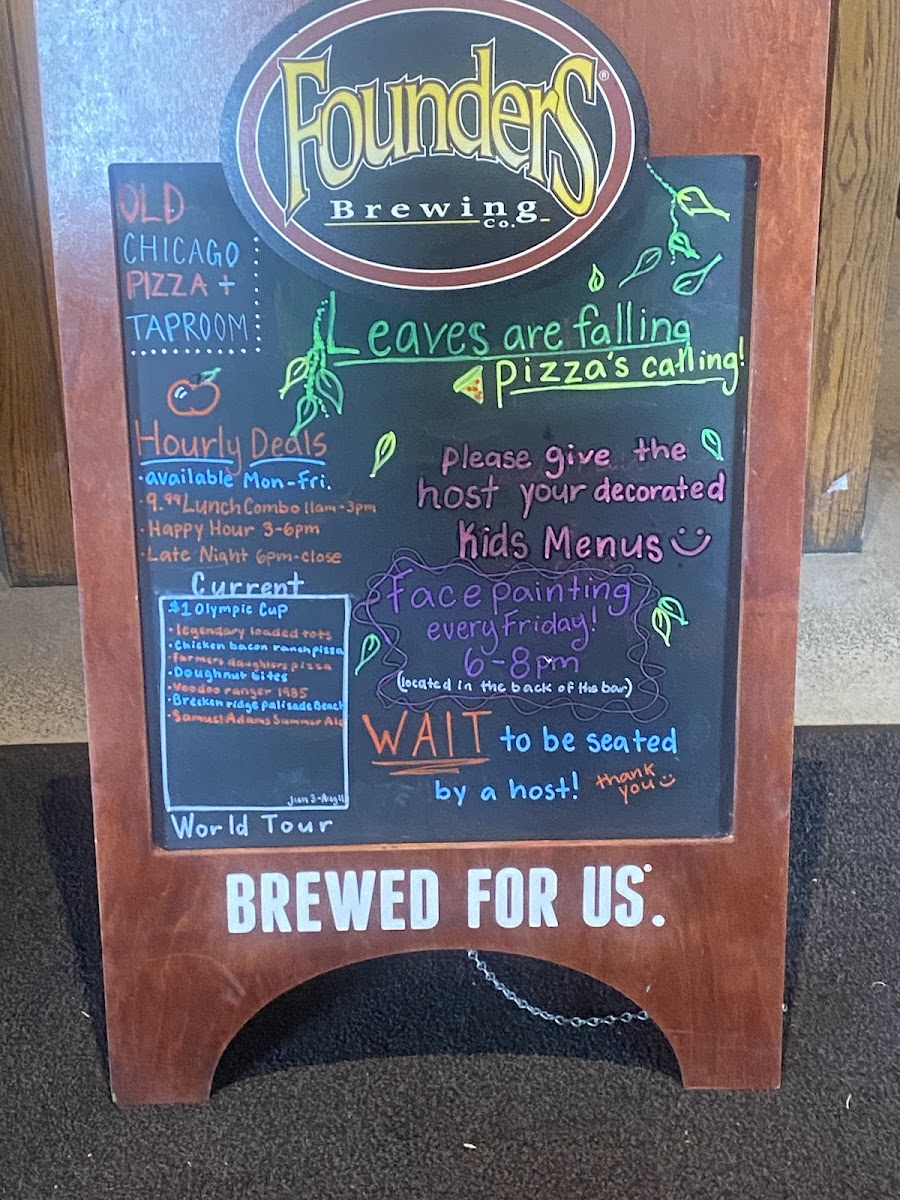 Founders®
Brewing
Co.
OLD
CHICAGO
PIZZA +
TAPROOM
Leaves are falling
Pizza's calling!
Hourly Deals
•available Mon-Fri.
•9.99 Lunch Combo 11am-3pm
•Happy Hour 3-6pm
•Late Night 6pm-close
Please give the
host your decorated
Kids Menus
Current
$1 Olympic Cup
•legendary loaded tots
•Chicken bacon ranch pizza
•farmers daughters pizza
•Doughnut bites
•Voodoo ranger 1985
•Breckenridge palisade Beach
•Samuel Adams Summer Ale
Jun 3-Aug11
World Tour
Face painting
every Friday!
6-8pm
(located in the back of the bar)
WAIT to be seated
by a host! thank
you
BREWED FOR US.